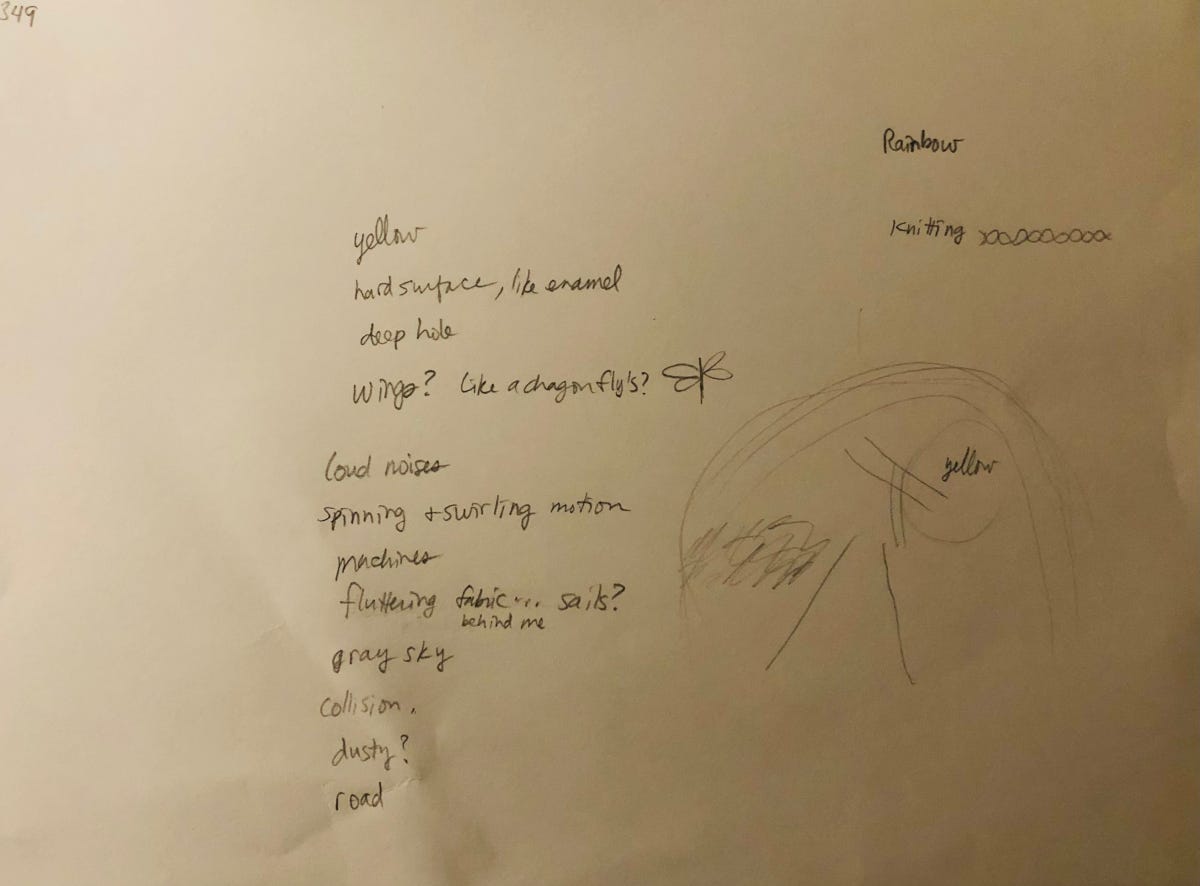 349
Rainbow
Knitting
yellow
hard surface, like enamel
deep hole
Wings? Like a dragonfly's?
loud noises
spinning + swirling motion
machines
fluttering fabric... sails?
behind me
gray sky
collision.
dusty?
road
yellow